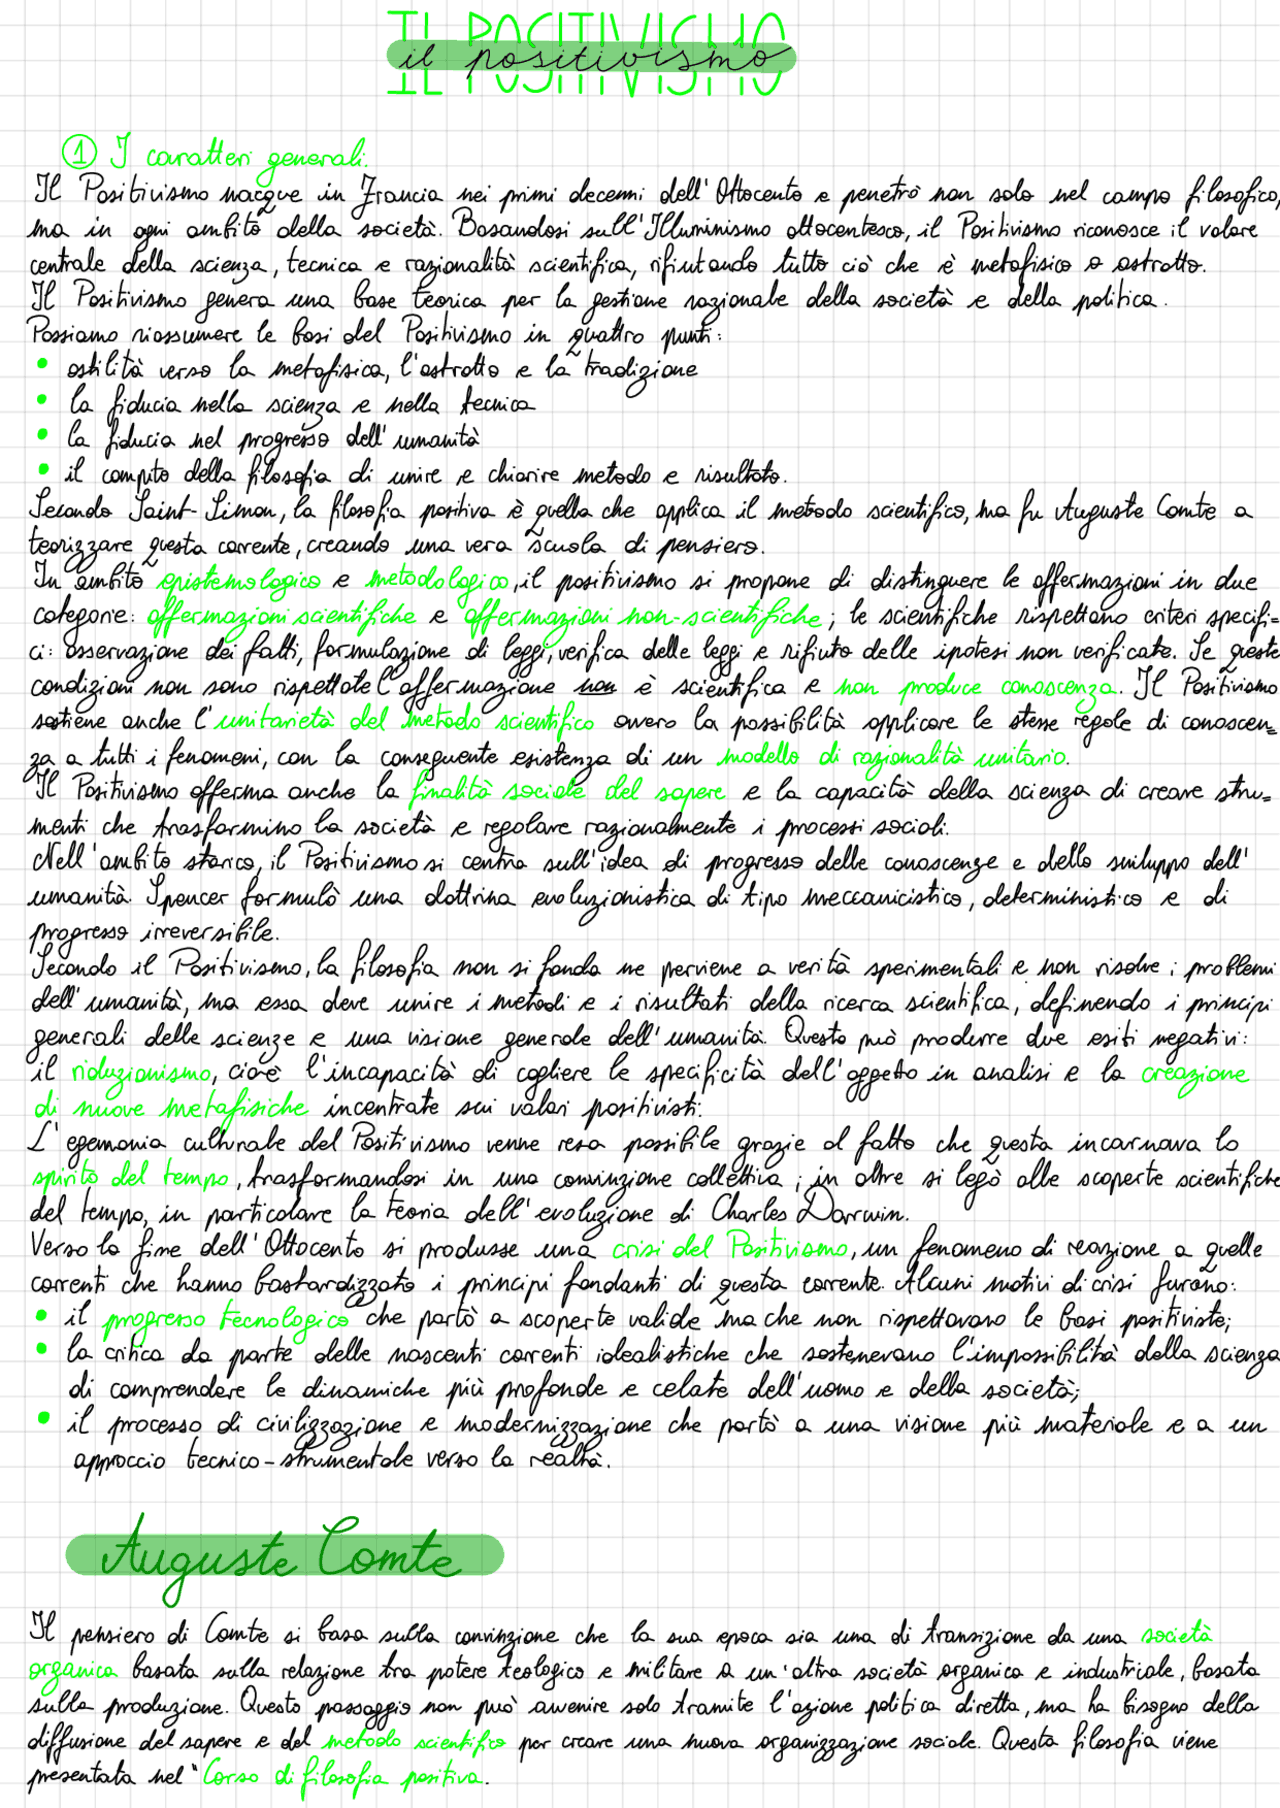 IL POSITIVISMO
il positivismo
① I caratteri generali.
Il Positivismo nacque in Francia nei primi decenni dell'Ottocento e penetrò non solo nel campo filosofico,
ma in ogni ambito della società. Basandosi sull'Illuminismo ottocentesco, il Positivismo riconosce il valore
centrale della scienza, tecnica e razionalità scientifica, rifiutando tutto ciò che è metafisico o astratto.
Il Positivismo genera una base teorica per la gestione razionale della società e della politica.
Possiamo riassumere le basi del Positivismo in quattro punti:
• ostilità verso la metafisica, l'astratto e la tradizione
• la fiducia nella scienza e nella tecnica
• la fiducia nel progresso dell'umanità
• il compito della filosofia di unire e chiarire metodo e risultato.
Secondo Saint-Simon, la filosofia positiva è quella che applica il metodo scientifico, ma fu Auguste Comte a
teorizzare questa corrente, creando una vera scuola di pensiero.
In ambito epistemologico e metodologico, il positivismo si propone di distinguere le affermazioni in due
categorie: affermazioni scientifiche e affermazioni non-scientifiche; le scientifiche rispettano criteri specifi=
ci: osservazione dei fatti, formulazione di leggi, verifica delle leggi e rifiuto delle ipotesi non verificate. Se queste
condizioni non sono rispettate l'affermazione non è scientifica e non produce conoscenza. Il Positivismo
sostiene anche l'unitarietà del metodo scientifico ovvero la possibilità applicare le stesse regole di conoscen=
za a tutti i fenomeni, con la conseguente esistenza di un modello di razionalità unitario.
Il Positivismo afferma anche la finalità sociale del sapere e la capacità della scienza di creare stru=
menti che trasformino la società e regolare razionalmente i processi sociali.
Nell'ambito storico, il Positivismo si centra sull'idea di progresso delle conoscenze e dello sviluppo dell'
umanità. Spencer formulò una dottrina evoluzionistica di tipo meccanicistico, deterministico e di
progresso irreversibile.
Secondo il Positivismo, la filosofia non si fonda ne perviene a verità sperimentali e non risolve i problemi
dell'umanità, ma essa deve unire i metodi e i risultati della ricerca scientifica, definendo i principi
generali delle scienze e una visione generale dell'umanità. Questo può produrre due esiti negativi:
il riduzionismo, cioè l'incapacità di cogliere le specificità dell'oggetto in analisi e la creazione
di nuove metafisiche incentrate sui valori positivisti.
L'egemonia culturale del Positivismo venne resa possibile grazie al fatto che questa incarnava lo
spirito del tempo, trasformandosi in una convinzione collettiva; in oltre si legò alle scoperte scientifiche
del tempo, in particolare la teoria dell'evoluzione di Charles Darwin.
Verso la fine dell'Ottocento si produsse una crisi del Positivismo, un fenomeno di reazione a quelle
correnti che hanno bastardizzato i principi fondanti di questa corrente. Alcuni motivi di crisi furono:
• il progresso tecnologico che portò a scoperte valide ma che non rispettavano le basi positiviste;
• la critica da parte delle nascenti correnti idealistiche che sostenevano l'impossibilità della scienza
di comprendere le dinamiche più profonde e celate dell'uomo e della società;
• il processo di civilizzazione e modernizzazione che portò a una visione più materiale e a un
approccio tecnico-strumentale verso la realtà.
Auguste Comte
Il pensiero di Comte si basa sulla convinzione che la sua epoca sia una di transizione da una società
organica basata sulla relazione tra potere teologico e militare a un'altra società organica e industriale, basata
sulla produzione. Questo passaggio non può avvenire solo tramite l'azione politica diretta, ma ha bisogno della
diffusione del sapere e del metodo scientifico per creare una nuova organizzazione sociale. Questa filosofia viene
presentata nel "Corso di filosofia positiva.